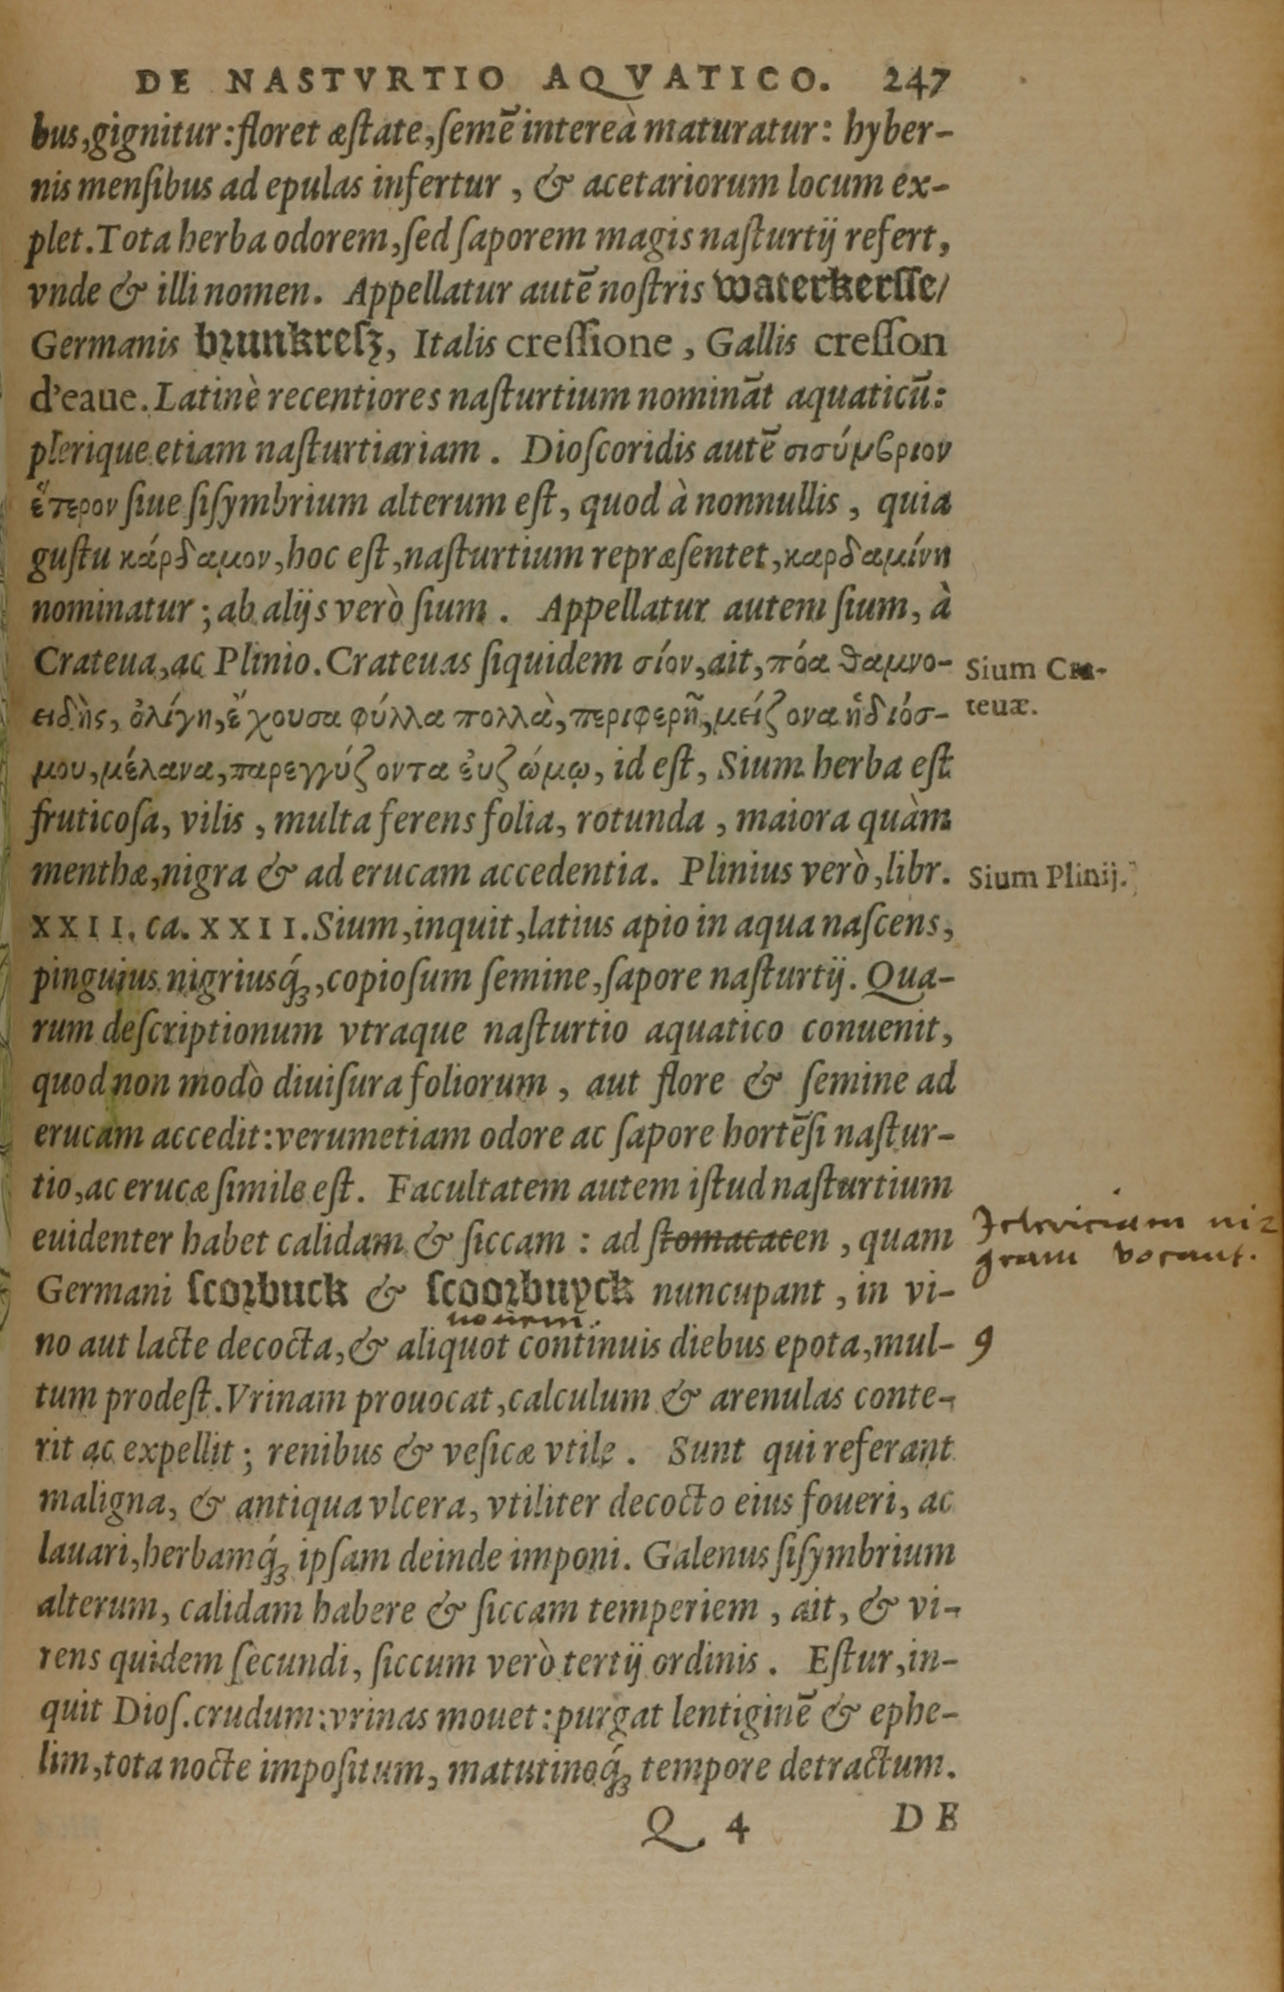 DE NASTVRTIO AQVATICO. 247
bus, gignitur: floret æſtate, ſemē intereà maturatur: hyber-
nis menſibus ad epulas infertur, & acetariorum locum ex-
plet. Tota herba odorem, ſed ſaporem magis naſturtij refert,
vnde & illi nomen. Appellatur autē noſtris waterkerſſe/
Germanis brunkreſz, Italis creſſione, Gallis creſſon
d'eaue. Latinè recentiores naſturtium nomināt aquaticū:
plerique etiam naſturtiariam. Dioſcoridis autē σισύμβριον
ἕτερον ſiue ſiſymbrium alterum eſt, quod à nonnullis, quia
guſtu κάρδαμον, hoc eſt, naſturtium repræſentet, καρδαμίνη
nominatur; ab alijs verò ſium. Appellatur autem ſium, à
Crateua, ac Plinio. Crateuas ſiquidem σίον, ait, πόα θαμνο-
Sium Cra-
teuæ.
ειδὴς, ὀλίγη, ἔχουσα φύλλα πολλὰ, περιφερῆ, μείζονα ἡδιόσ-
μου, μέλανα, παρεγγύζοντα ἐυζώμῳ, id eſt, Sium herba eſt
fruticoſa, vilis, multa ferens folia, rotunda, maiora quàm
menthæ, nigra & ad erucam accedentia. Plinius verò, libr.
Sium Plinij.
XXII. ca. XXII. Sium, inquit, latius apio in aqua naſcens,
pinguius nigriusq́ꝫ, copioſum ſemine, ſapore naſturtij. Qua-
rum deſcriptionum vtraque naſturtio aquatico conuenit,
quod non modò diuiſura foliorum, aut flore & ſemine ad
erucam accedit: verumetiam odore ac ſapore hortēſi naſtur-
tio, ac erucæ ſimile eſt. Facultatem autem iſtud naſturtium
euidenter habet calidam & ſiccam: ad ſtomacacen, quam
gram vocant.
Germani ſcorbuck & ſcoorbuyck nuncupant, in vi-
no aut lacte decocta, & aliquot continuis diebus epota, mul-
9
tum prodeſt. Vrinam prouocat, calculum & arenulas conte-
rit ac expellit; renibus & veſicæ vtile. Sunt qui referant
maligna, & antiqua vlcera, vtiliter decocto eius foueri, ac
lauari, herbamq́ꝫ ipſam deinde imponi. Galenus ſiſymbrium
alterum, calidam habere & ſiccam temperiem, ait, & vi-
rens quidem ſecundi, ſiccum verò tertij ordinis. Eſtur, in-
quit Dioſ. crudum: vrinas mouet: purgat lentiginē & ephe-
lim, tota nocte impoſitum, matutinoq́ꝫ tempore detractum.
Q 4 DE